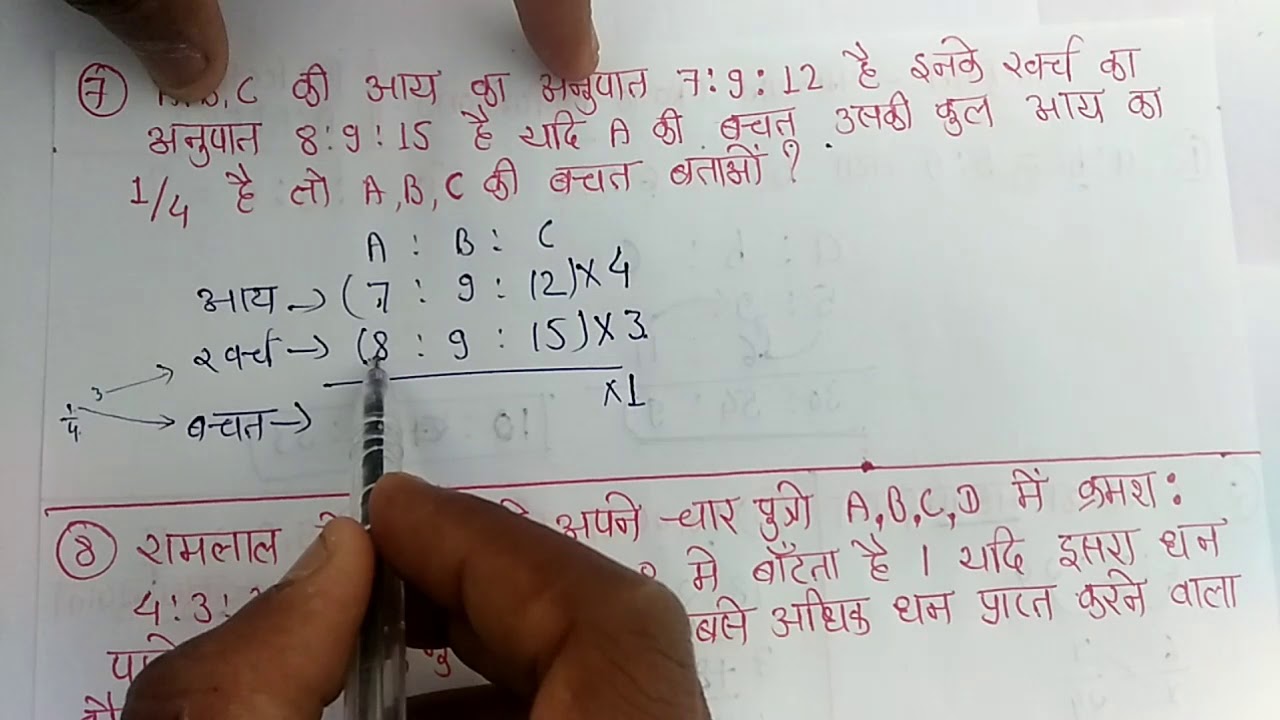 7 A,B,C की आय का अनुपात 7:9:12 है इनके खर्च का
अनुपात 8:9:15 है यदि A की बचत उसकी कुल आय का
1/4 है तो A,B,C की बचत बताओं?
A : B : C
आय → (7 : 9 : 12)×4
खर्च → (8 : 9 : 15)×3
×1
1/4 3
बचत →
8 रामलाल अपने चार पुत्रो A,B,C,D में क्रमश:
4:3: मे बाँटता है । यदि इसरा धन
अधिक धन प्राप्त करने वाला